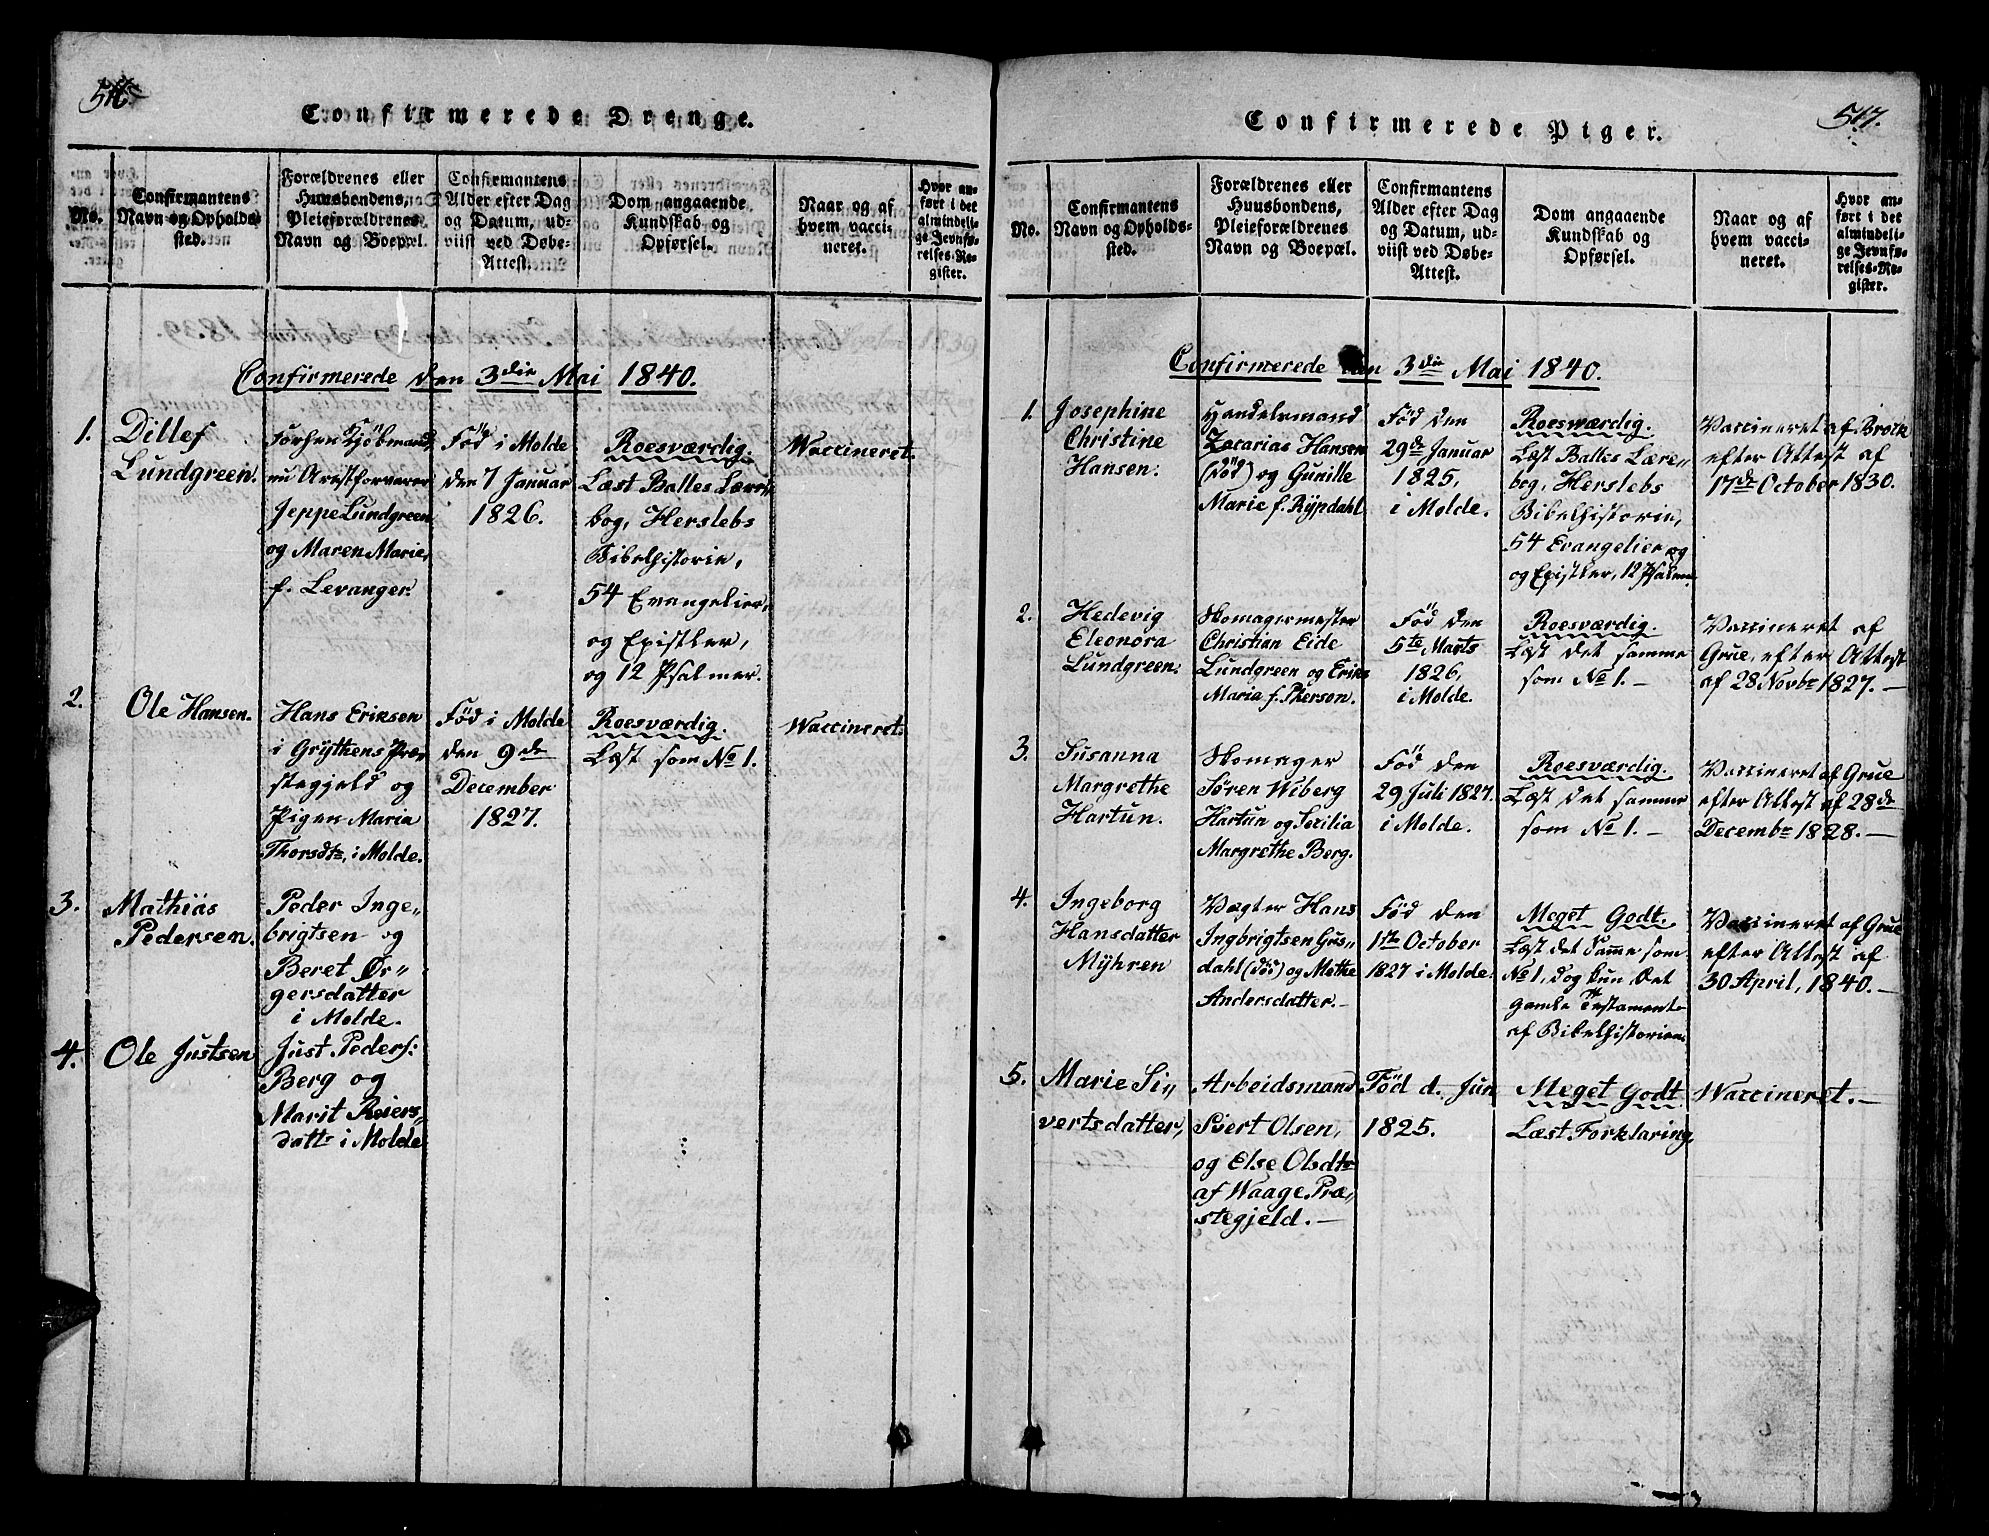 516
Confirmerede Drenge.
No.
Confirmantens
Navn og Opholds-
sted.
Forældrenes eller
Huusbondens,
Pleieforældrenes
Navn og Boepæl.
Confirmantens
Alder efter Dag
og Datum, ud-
viist ved Døbe-
Attest.
Dom angaaende
Kundskab og
Opførsel.
Naar og af
hvem vacci-
neret.
Hvor an-
ført i det
almindeli-
ge Jevnfø-
relses-Re-
gister.
Confirmerede den 3die Mai 1840.
1.
Ditlef
Lundgreen.
Forhen Kjöbmand,
nu Arestforvarer
Jeppe Lundgreen
og Maren Marie,
f. Levanger.
Fød i Molde
den 7 Januar
1826.
Roesværdig.
Læst Balles Lære-
bog, Herslebs
Bibelhistorie,
54 Evangelier,
og Epistler,
og 12 Psalmer.
Vaccineret.
2.
Ole Hansen.
Hans Eriksen
i Grÿthens Præ-
stegjeld og
Pigen Maria
Thorsdtr, i Molde.
Fød i Molde
den 9de
December
1827.
Roesværdig.
Læst som No 1.
Vaccineret.
3.
Mathias
Pedersen.
Peder Inge„
brigtsen og
Beret Ør„
gersdatter
i Molde.
4.
Ole Justsen
Just Peders:
Berg og
Marit Reiers„
datt. i Molde
517.
Confirmerede Piger.
No.
Confirmantens
Navn og Opholds-
sted.
Forældrenes eller
Huusbondens,
Pleieforældrenes
Navn og Boepæl.
Confirmantens
Alder efter Dag
og Datum, ud-
viist ved Døbe-
Attest.
Dom angaaende
Kundskab og
Opførsel.
Naar og af
hvem vacci-
neret.
Hvor an-
ført i det
almindeli-
ge Jevnfø-
relses-Re-
gister.
Confirmerede den 3die Mai 1840.
1.
Josephine
Christine
Hansen.
Handelsmand
Zacarias Hansen
(död) og Gunille
Marie f. Rÿpdahl.
Fød den
29de Januar
1825,
i Molde.
Roesværdig.
Læst Balles Lære„
bog, Herslebs
Bibelhistorie,
54 Evangelier og
og Epistler, 12 Psalmer
Vaccineret af Brock
efter Attest af
17de October 1830.
2.
Hedevig
Eleonora
Lundgreen.
Skomagermester
Christian Eide
Lundgreen og Erike
Maria f. Pherson.
Fød den
5te Marts
1826,
i Molde.
Roesværdig.
Læst det samme
som No 1. —
Vaccineret af
Grue, efter Attest
af 28 Novbr 1827. —
3.
Susanna
Margrethe
Hartun.
Skomager
Søren Wiberg
Hartun og Secilia
Margrethe Berg.
Fød den
29 Juli 1827.
i Molde.
Roesværdig.
Læst det samme
som No 1. —
Vaccineret af Grue
efter Attest af 28de
Decembr 1828. —
4.
Ingeborg
Hansdatter
Mÿhren
Vægter Hans
Ingbrigtsen Gus„
dahl (død) og Methe
Andersdatter. —
Fød den
1te October
1827 i Molde.
Meget Godt.
Læst det samme som
No 1, dog kun det
gamle Testamente
af Bibelhistorien.
Vaccineret af Grue
efter Attest af
30 April, 1840. —
5.
Marie Si„
vertsdatter,
Arbeidsmand
Sivert Olsen,
og Else Olsdtr
af Waage Præ„
stegjeld. —
Fød d. Jun
1825.
Meget Godt
Læst Forklaring
Vaccineret. —